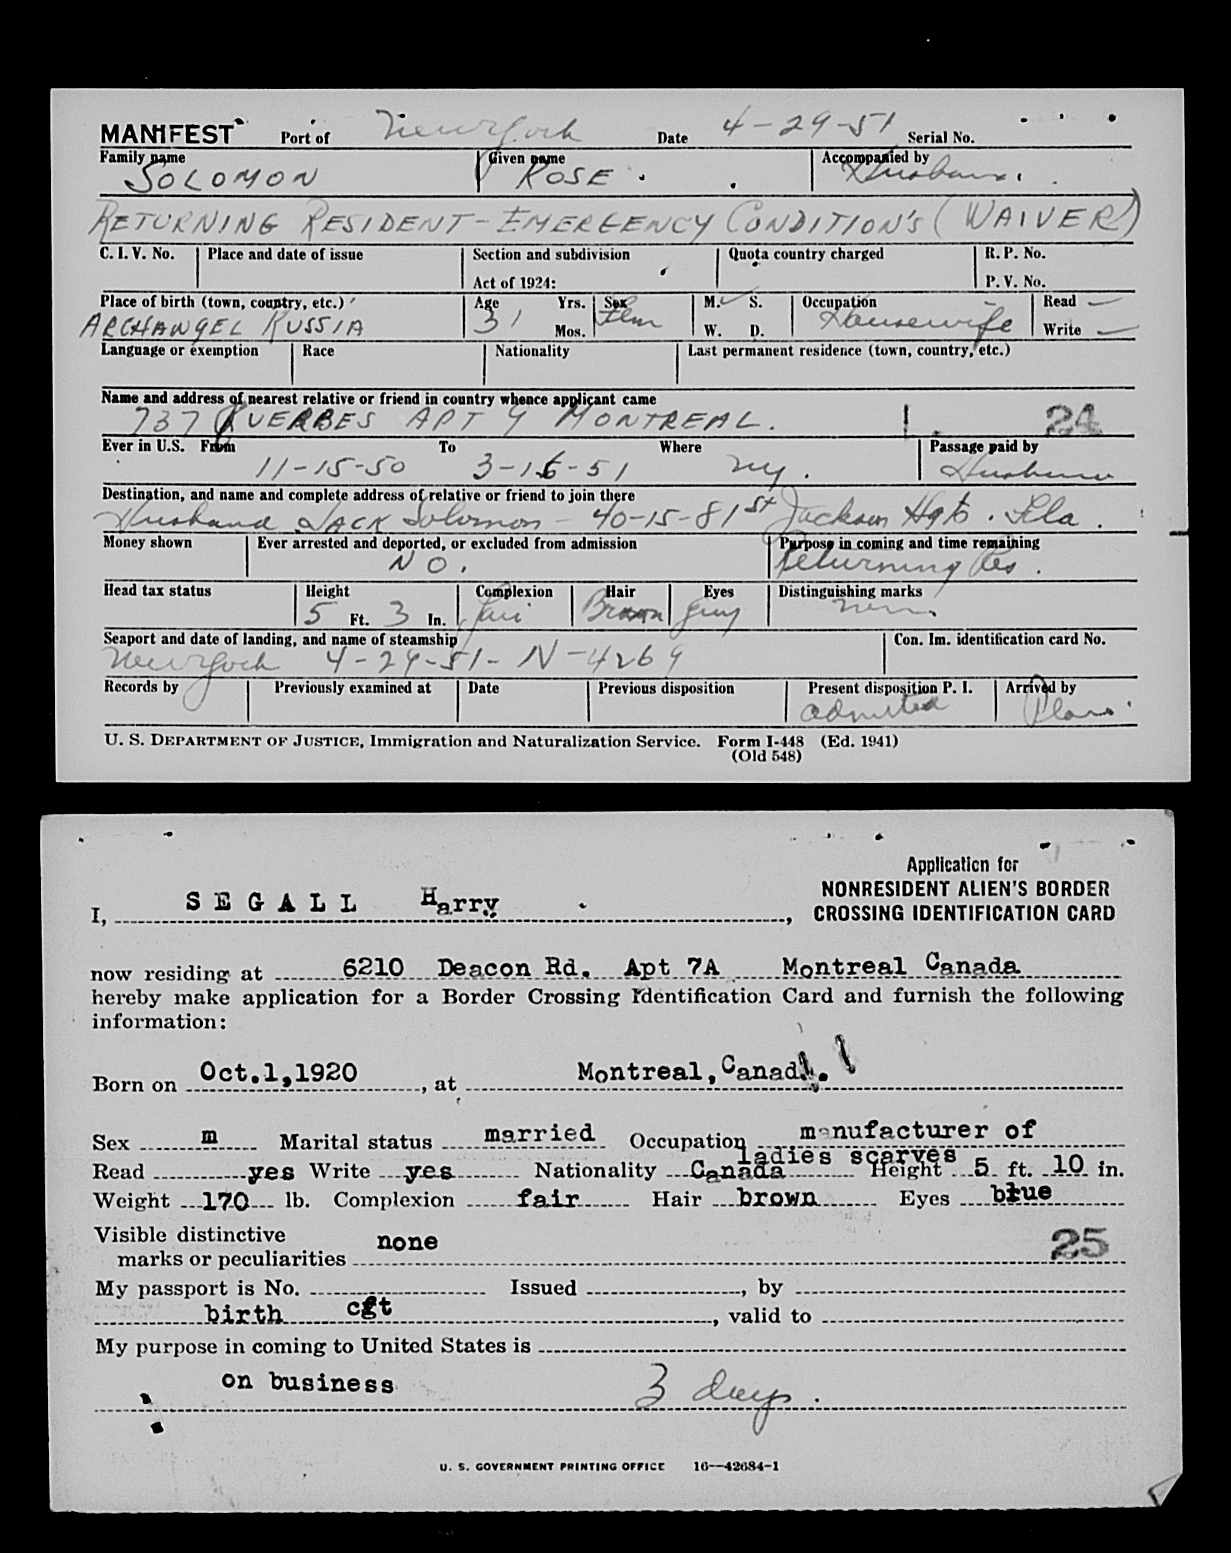 MANIFEST Port of New York Date 4-29-51 Serial No.
Family name Given name Accompanied by
SOLOMON ROSE Husband.
RETURNING RESIDENT - EMERGENCY CONDITION'S (WAIVER)
C. I. V. No. Place and date of issue Section and subdivision Quota country charged R. P. No.
Act of 1924: P. V. No.
Place of birth (town, country, etc.) Age Yrs. Sex M. S. Occupation Read
ARCHANGEL RUSSIA 31 Mos. Fem W. D. Housewife Write
Language or exemption Race Nationality Last permanent residence (town, country, etc.)
Name and address of nearest relative or friend in country whence applicant came
737 QUERBES APT 9 MONTREAL. 24
Ever in U.S. From To Where Passage paid by
11-15-50 3-15-51 NY. Husband
Destination, and name and complete address of relative or friend to join there
Husband JACK Solomon - 40-15-81st Jackson Hgts. Fla.
Money shown Ever arrested and deported, or excluded from admission Purpose in coming and time remaining
NO. Returning Res.
Head tax status Height Complexion Hair Eyes Distinguishing marks
5 Ft. 3 In. fair Brown grey
Seaport and date of landing, and name of steamship Con. Im. identification card No.
New York 4-29-51- N-4269
Records by Previously examined at Date Previous disposition Present disposition P. I. Arrived by
admitted Plane.
U. S. DEPARTMENT OF JUSTICE, Immigration and Naturalization Service. Form I-448 (Ed. 1941)
(Old 548)
Application for
NONRESIDENT ALIEN'S BORDER
CROSSING IDENTIFICATION CARD
I, SEGALL Harry,
now residing at 6210 Deacon Rd. Apt 7A Montreal Canada
hereby make application for a Border Crossing Identification Card and furnish the following
information:
Born on Oct.1,1920, at Montreal,Canada.
Sex m Marital status married Occupation manufacturer of
ladies scarves
Read yes Write yes Nationality Canada Height 5 ft. 10 in.
Weight 170 lb. Complexion fair Hair brown Eyes blue
Visible distinctive
marks or peculiarities none 25
My passport is No. Issued , by
birth cft , valid to
My purpose in coming to United States is
on business 3 days.
U. S. GOVERNMENT PRINTING OFFICE 16—42684-1